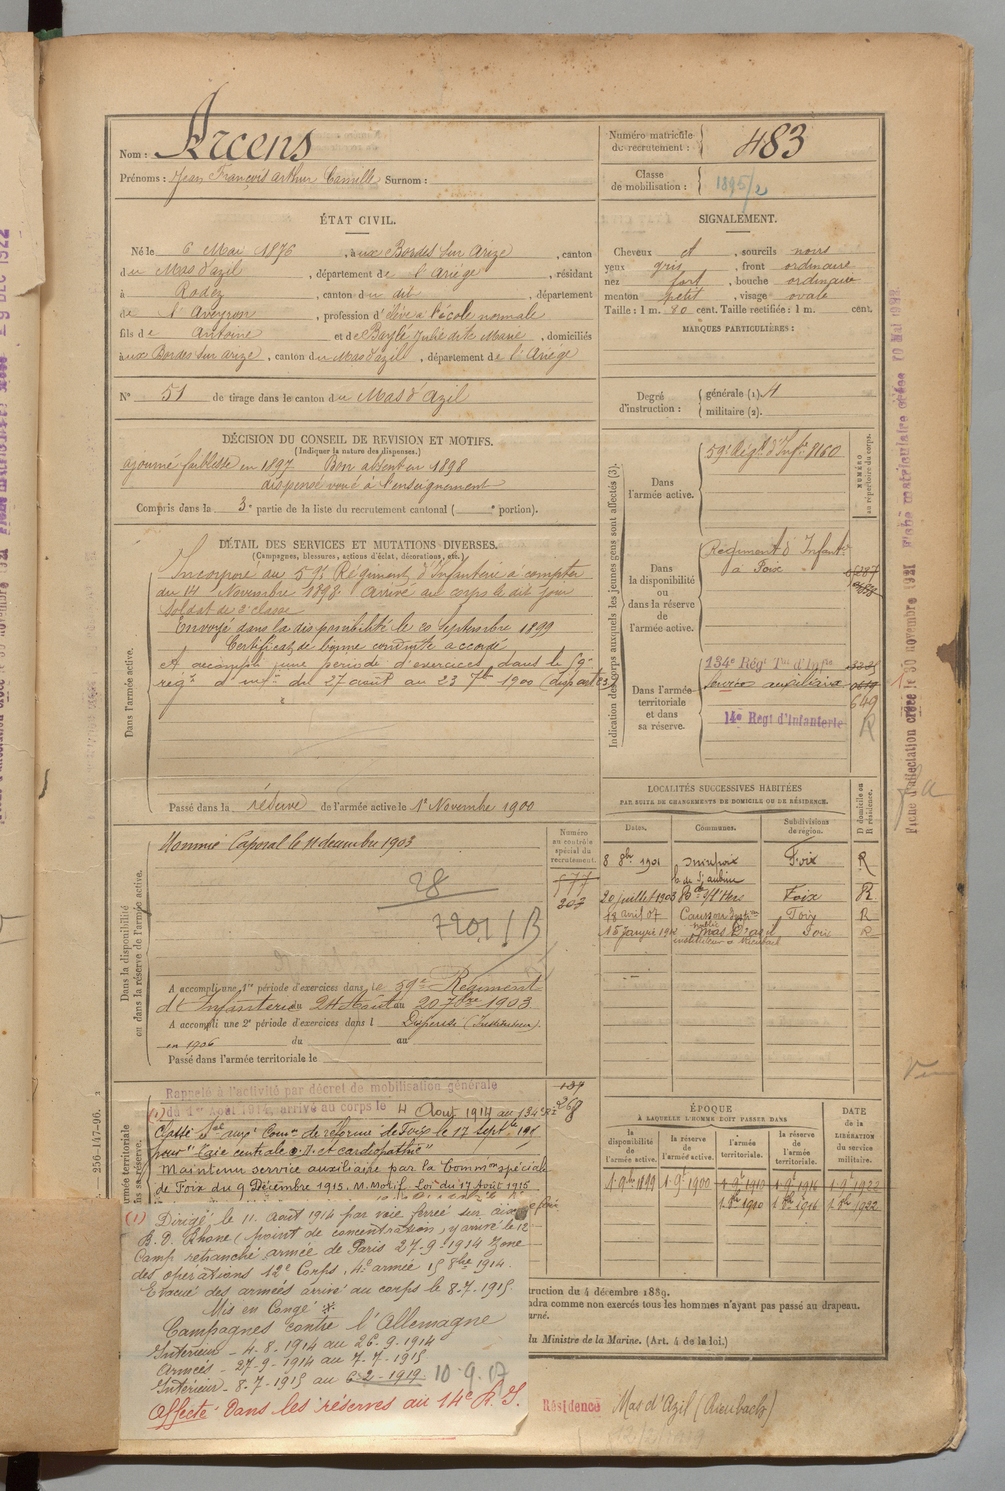 Nom : Arcens
Prénoms : Jean François Arthur Camille Surnom :
Numéro matricule du recrutement : 483
Classe de mobilisation : 1895/2
ÉTAT CIVIL.
Né le 6 Mai 1876, aux Bordes sur Arize, canton
du Mas d'azil, département de l'Ariége, résidant
à Rodez, canton du dit, département
de l'Aveyron, profession d'élève à l'école normale
fils de Antoine et de Baylé Julie dite Marie, domiciliés
aux Bordes sur arize, canton du Mas d'azil, département de l'Ariége
N° 51 de tirage dans le canton du Mas d'Azil
SIGNALEMENT.
Cheveux et, sourcils noirs
yeux gris, front ordinaire
nez fort, bouche ordinaire
menton petit, visage ovale
Taille : 1 m. 80 cent. Taille rectifiée : 1 m. cent.
MARQUES PARTICULIÈRES :
Degré d'instruction : générale (1). 4
militaire (2).
DÉCISION DU CONSEIL DE REVISION ET MOTIFS.
(Indiquer la nature des dispenses.)
ajourné faiblesse en 1897. Bon absent en 1898
dispensé voué à l'enseignement
Compris dans la 3e partie de la liste du recrutement cantonal ( e portion).
DÉTAIL DES SERVICES ET MUTATIONS DIVERSES.
(Campagnes, blessures, actions d'éclat, décorations, etc.)
Dans l'armée active.
Incorporé au 59e Régiment d'Infanterie à compter
du 14 Novembre 1898. Arrivé au corps le dit jour
Soldat de 2e classe
Envoyé dans la disponibilité le 20 Septembre 1899
Certificat de bonne conduite accordé
et accompli une période d'exercices dans le 59e
régt d'infie du 27 août au 23 7bre 1900
Passé dans la réserve de l'armée active le 1er Novembre 1900
Indication des corps auxquels les jeunes gens sont affectés (3).
NUMÉRO au répertoire du corps.
Dans l'armée active.
59e Régt d'Infie 8160
Dans la disponibilité ou dans la réserve de l'armée active.
Régiment d'Infantie
à Foix
Dans l'armée territoriale et dans sa réserve.
134e Régt Tal d'Infie
Service auxiliaire
649
14e Régt d'Infanterie
R
LOCALITÉS SUCCESSIVES HABITÉES
PAR SUITE DE CHANGEMENTS DE DOMICILE OU DE RÉSIDENCE.
Dates. Communes. Subdivisions de région. D domicile ou R résidence.
8 8bre 1901 Mirepoix Foix R
20 juillet 1903 Foix R
18 avril 07 Caussou Foix R
15 Janvier Mas d'azil Foix R
Dans la disponibilité ou dans la réserve de l'armée active.
Nommé Caporal le 11 décembre 1903
28
7201 / B
Numéro au contrôle spécial du recrutement.
577
203
A accompli une 1re période d'exercices dans le 59e Régiment
d'Infanterie du 24 Août au 20 7bre 1903
A accompli une 2e période d'exercices dans l Dispensé (Instituteur)
en 1906 du au
Passé dans l'armée territoriale le
Rappelé à l'activité par décret de mobilisation générale
du 1er Août 1914, arrivé au corps le 4 Août 1914 au 134e
268
Maintenu service auxiliaire par la Common spéciale
de Foix du 9 Décembre 1915. M. Motif. Loi du 17 Août 1915
(1) Dirigé le 11 Août 1914 par voie ferrée sur
B. D. Rhone (point de concentration) y arrivé le 12
Camp retranché armée de Paris 27-9-1914 Zone
des opérations 12e Corps, 4e armée 15 8bre 1914.
Evacué des armées arrivé au corps le 8-7-1915.
Mis en Congé *
Campagnes contre l'Allemagne
Intérieur - 4-8-1914 au 26-9-1914
Armées - 27-9-1914 au 7-7-1915
Intérieur - 8-7-1915 au 6-2-1919 10-9-17
Affecté dans les réserves au 14e R. I.
ÉPOQUE
À LAQUELLE L'HOMME DOIT PASSER DANS
DATE DE LA LIBÉRATION DU service militaire.
la disponibilité de l'armée active. la réserve de l'armée active. l'armée territoriale. la réserve de l'armée territoriale.
1 9bre 1899 1 9bre 1900 1 9bre 1910 1 9bre 1916 1 9bre 1922
1 8bre 1910 1 8bre 1916 1 8bre 1922
truction du 4 décembre 1889.
adra comme non exercés tous les hommes n'ayant pas passé au drapeau.
urné.
du Ministre de la Marine. (Art. 4 de la loi.)
Résidence Mas d'Azil (Rieubach)
256-147-96.
Fiche d'affectation créée le 30 novembre 1921 Fiche matriculaire créée 10 Mai 1923